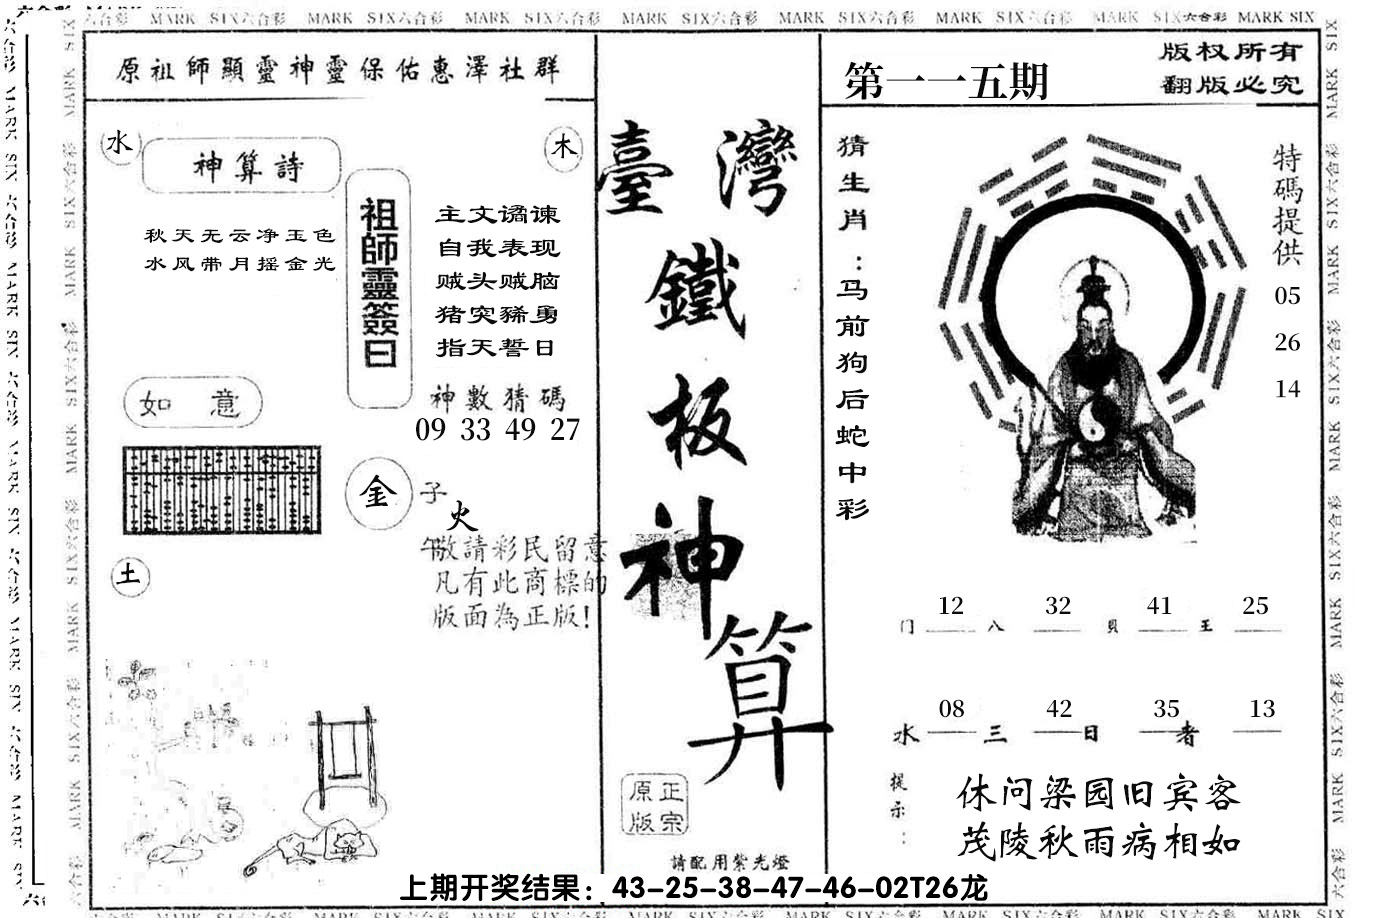 MARK SIX六合彩 MARK SIX六合彩 MARK SIX六合彩 MARK SIX六合彩 MARK SIX六合彩 MARK SIX六合彩 MARK SIX六合彩 MARK SIX
原祖師顯靈神靈保佑惠澤社群
水
木
神算詩
秋天无云净玉色
水风带月摇金光
祖師靈簽曰
主文谲谏
自我表现
贼头贼脑
猪突豨勇
指天誓日
神數猜碼
09 33 49 27
如意
金
子
火
午
敬請彩民留意
凡有此商標的
版面為正版!
土
臺灣鐵板神算
正宗原版
請配用紫光燈
第一一五期
版权所有
翻版必究
猜生肖:马前狗后蛇中彩
特碼提供
05
26
14
12 32 41 25
门 八 貝 王
08 42 35 13
水 三 日 者
提示:
休问梁园旧宾客
茂陵秋雨病相如
上期开奖结果：43-25-38-47-46-02T26龙